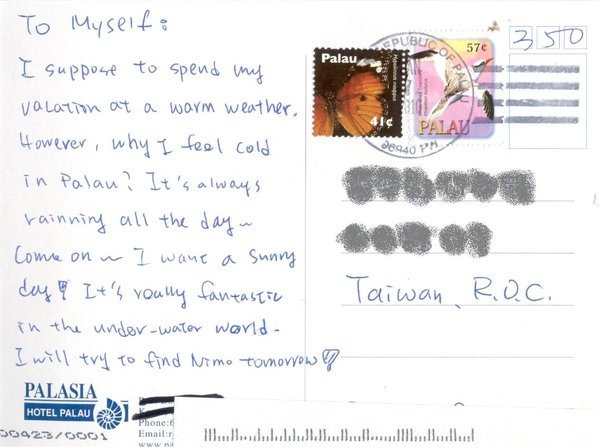 To Myself:
I suppose to spend my
vacation at a warm weather.
However, why I feel cold
in Palau? It's always
rainning all the day~
Come on ~ I want a sunny
day! It's really fantastic
in the under-water world.
I will try to find Nimo tomorrow
PALASIA
HOTEL PALAU
Phone:6
Email:r
www.pa
00423/0001
Palau
41¢
57¢
PALAU
REPUBLIC OF PALAU
96940
350
Taiwan, R.O.C.